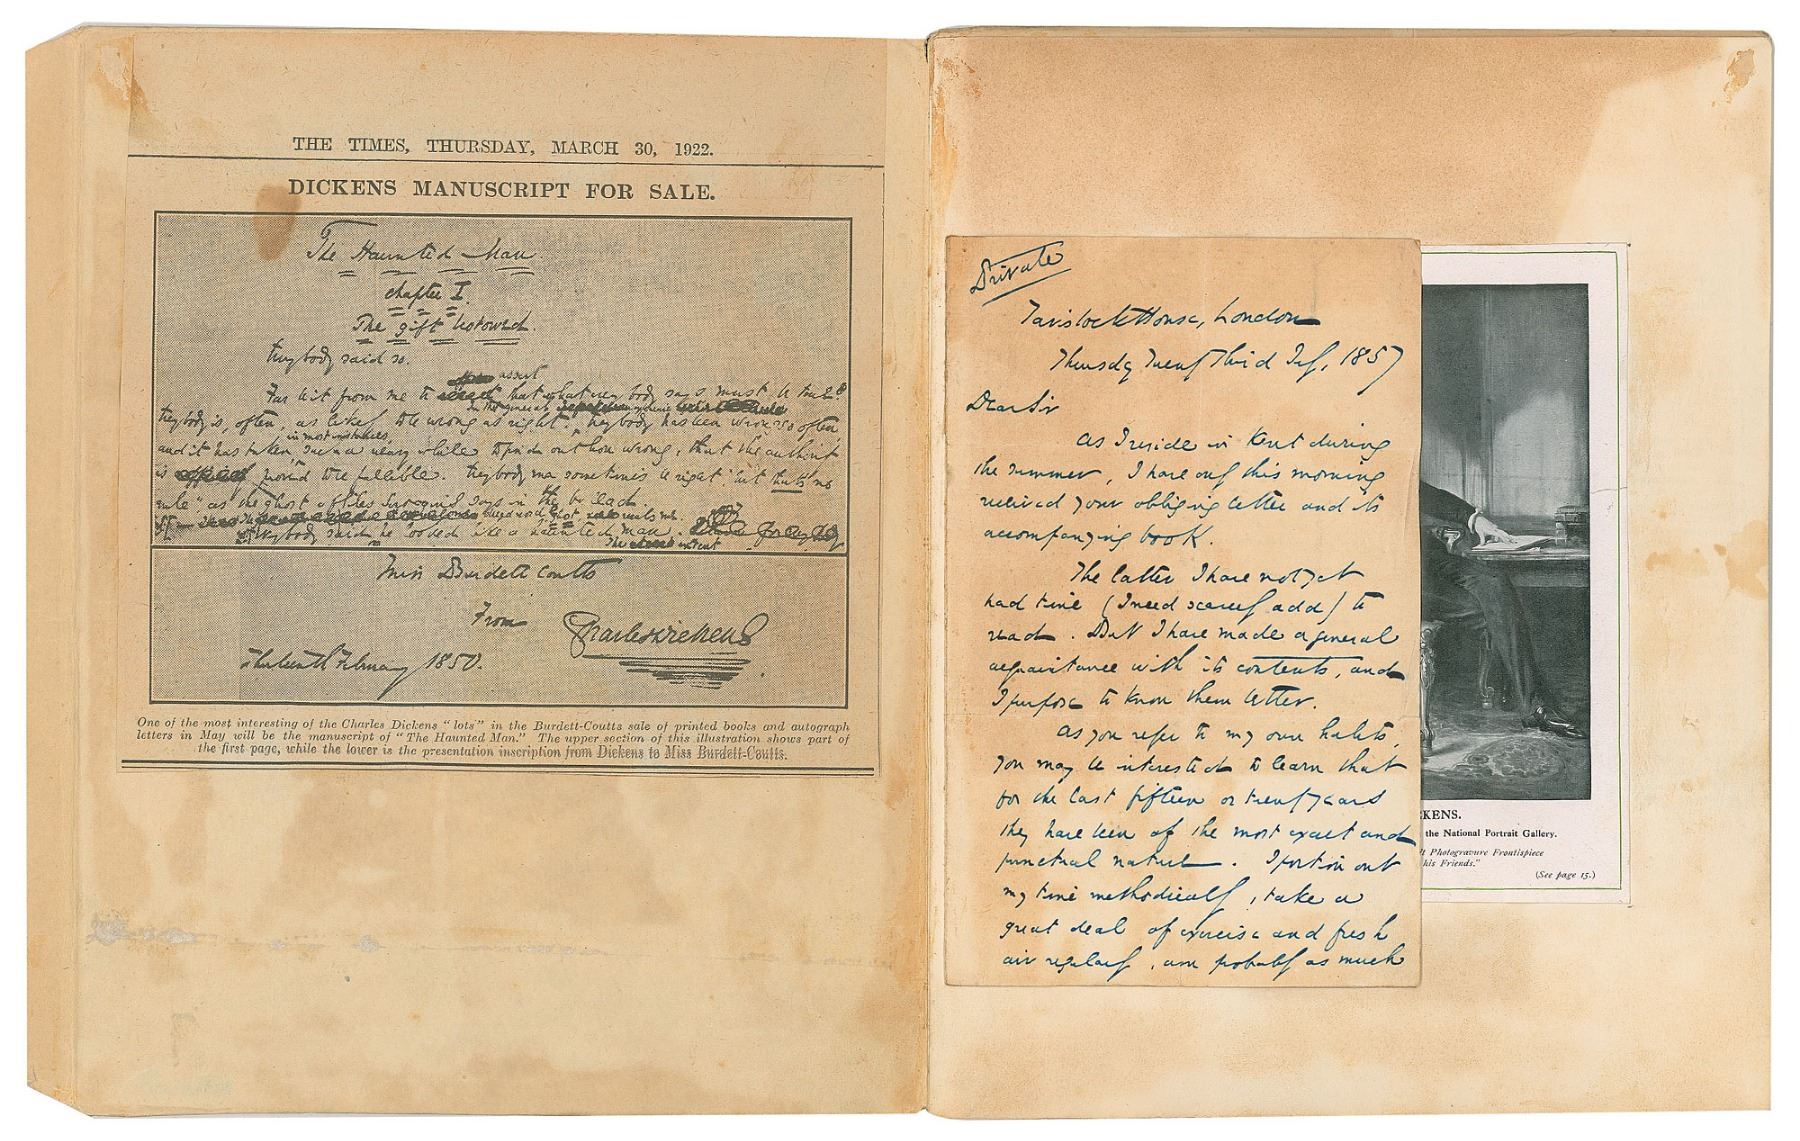 THE TIMES, THURSDAY, MARCH 30, 1922.
DICKENS MANUSCRIPT FOR SALE.
The Haunted Man
Chapter I.
The gift bestowed.
Everybody said so.
Far be it from me to assert that what everybody says must be true.
Everybody is, often, as likely to be wrong as right. Everybody has been wrong so often
in most instances,
and it has taken such a weary while to find out how wrong, that the authority
is proved to be fallible. Everybody may sometimes be right; "but that's no
rule" as the ghost of Giles Scroggins says in the ballad.
Everybody said he looked like a haunted man.
The extent
Miss Burdett Coutts
From
Charles Dickens
Thirteenth February 1850.
One of the most interesting of the Charles Dickens "lots" in the Burdett-Coutts sale of printed books and autograph
letters in May will be the manuscript of "The Haunted Man." The upper section of this illustration shows part of
the first page, while the lower is the presentation inscription from Dickens to Miss Burdett-Coutts.
Private
Tavistock House, London
Thursday Twenty Third July, 1857
Dear Sir
As I reside in Kent during
the summer, I have only this morning
received your obliging letter and its
accompanying book.
The latter I have not yet
had time (I need scarcely add) to
read. But I have made a general
acquaintance with its contents, and
I purpose to know them better.
As you refer to my own habits,
you may be interested to learn that
for the last fifteen or twenty years
they have been of the most exact and
punctual nature. I portion out
my time methodically, take a
great deal of exercise and fresh
air regularly, am probably as much
KENS.
the National Portrait Gallery.
Photogravure Frontispiece
his Friends."
(See page 15.)